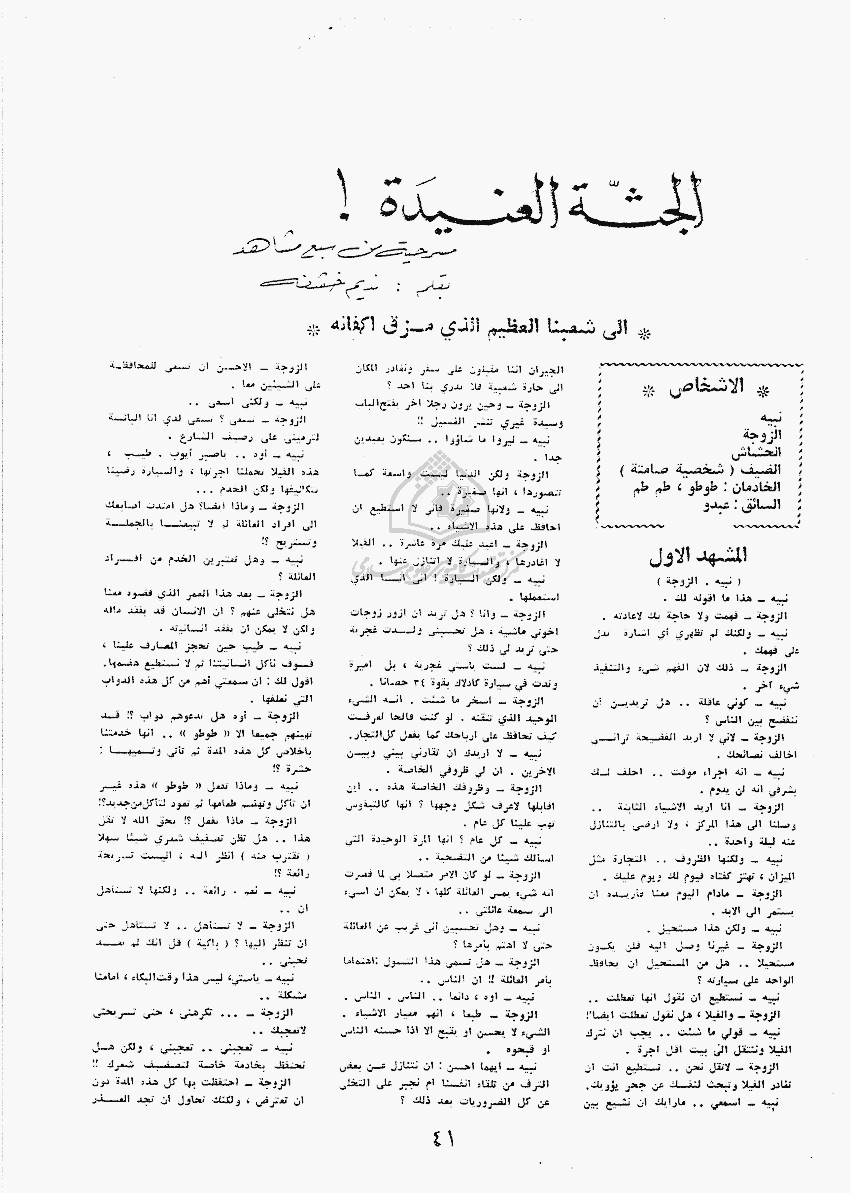 الجثّة العنيدة !
مسرحية من سبع مشاهد
بقلم : نديم خشفة
* الى شعبنا العظيم الذي مزق اكفانه *
* الاشخاص *
نبيه
الزوجة
الحشاش
الضيف ( شخصية صامتة )
الخادمان : طوطو ، طم طم
السائق : عبدو
المشهد الاول
( نبيه . الزوجة )
نبيه – هذا ما اقوله لك .
الزوجة – فهمت ولا حاجة بك لاعادته .
نبيه – ولكنك لم تظهري أي اشارة تدل
على فهمك .
الزوجة – ذلك لان الفهم شيء والتنفيذ
شيء آخر .
نبيه – كوني عاقلة .. هل تريدين أن
نفتضح بين الناس ؟
الزوجة – لاني لا اريد الفضيحة تراني
اخالف نصائحك .
نبيه – انه اجراء موقت .. احلف لك
بشرفي انه لن يدوم .
الزوجة – انا اريد الاشياء الثابتة ..
وصلنا الى هذا المركز ، ولا ارضى بالتنازل
عنه ليلة واحدة ..
نبيه – ولكنها الظروف .. التجارة مثل
الميزان ، تهتز كفتاه فيوم لك ويوم عليك .
الزوجة – مادام اليوم معنا فأريده ان
يستمر الى الابد .
نبيه – ولكن هذا مستحيل .
الزوجة – غيرنا وصل اليه فلن يكون
مستحيلا .. هل من المستحيل ان يحافظ
الواحد على سيارته ؟
نبيه – نستطيع ان نقول انها تعطلت ..
الزوجة – والفيلا ، هل نقول تعطلت ايضا؟!
نبيه – قولي ما شئت .. يجب ان نترك
الفيلا وننتقل الى بيت اقل اجرة .
الزوجة – لاتقل نحن .. تستطيع انت ان
تغادر الفيلا وتبحث لنفسك عن جحر يؤويك.
نبيه – اسمعي .. مارأيك ان نشيع بين
الجيران اننا مقبلون على سفر ونغادر المكان
الى حارة شعبية فلا يدري بنا احد ؟
الزوجة – وحين يرون رجلا اخر يفتح الباب
وسيدة غيري تنشر الغسيل !!
نبيه – ليروا ما شاؤوا .. سنكون بعيدين
جدا .
الزوجة ولكن الدنيا ليست واسعة كما
تتصورها ، انها صغيرة ..
نبيه – ولانها صغيرة فاني لا استطيع ان
احافظ على هذه الاشياء ..
الزوجة – اعيد عليك مرة عاشرة .. الفيلا
لا اغادرها ، والسيارة لا اتنازل عنها .
نبيه – ولكن السيارة ! اني انا الذي
استعملها .
الزوجة – وانا ؟ هل تريد ان ازور زوجات
اخوتي ماشية ، هل تحسبني ولدت غجرية
حتى تريد لي ذلك ؟
نبيه – لست ياستي غجرية ، بل اميرة
ولدت في سيارة كادلاك بقوة ٣٤ حصانا .
الزوجة – اسخر ما شئت . انه الشيء
الوحيد الذي تتقنه . لو كنت فالحا لعرفت
كيف تحافظ على ارباحك كما يفعل كل التجار.
نبيه – لا اريدك ان تقارني بيني وبين
الاخرين . ان لي ظروفي الخاصة .
الزوجة – وظروفك الخاصة هذه .. اين
اقابلها لاعرف شكل وجهها ؟ انها كالتيفوس
تهب علينا كل عام .
نبيه – كل عام ؟ انها المرة الوحيدة التي
اسألك شيئا من التضحية ..
الزوجة – لو كان الامر متصلا بي لما قصرت
انه شيء يمس العائلة كلها ، لا يمكن ان اسيء
الى سمعة عائلتي ..
نبيه – وهل تحسبين أني غريب عن العائلة
حتى لا اهتم بأمرها ؟
الزوجة – هل تسمي هذا التسول اهتماما
بأمر العائلة !! ان الناس ..
نبيه – اوه ، دائما .. الناس . الناس .
الزوجة – طبعا ، انهم معيار الاشياء .
الشيء لا يحسن او يقبح الا اذا حسنه الناس
او قبحوه .
نبيه – أيهما احسن : ان نتنازل عن بعض
الترف من تلقاء انفسنا ام نجبر على التخلي
عن كل الضروريات بعد ذلك ؟
الزوجة – الاحسن ان تسعى للمحافظة
على الشيئين معا .
نبيه – ولكني اسعى ..
الزوجة – تسعى ؟ تسعى لدي انا البائسة
لترميني على رصيف الشارع .
نبيه – اوه .. ياصبر أيوب . طيب ،
هذه الفيلا تحملنا اجرتها ، والسيارة رضينا
بتكاليفها ولكن الخدم ...
الزوجة – وماذا ايضا؟ هل امتدت اصابعك
الى افراد العائلة لم لا تبيعنا بالجملة
وتستريح ؟!
نبيه – وهل تعتبرين الخدم من افراد
العائلة ؟
الزوجة – بعد هذا العمر الذي قضوه معنا
هل نتخلى عنهم ؟ ان الانسان قد يفقد ماله
ولكن لا يمكن ان يفقد انسانيته .
نبيه – طيب حين تحجز المصارف علينا ،
فسوف نأكل انسانيتنا ثم لا نستطيع هضمها.
اقول لك : ان سمعتي أهم من كل هذه الدواب
التي نعلفها .
الزوجة – أوه هل تدعوهم دواب ؟! قد
تهينهم جميعا الا « طوطو » .. انها خدمتنا
باخلاص كل هذه المدة ثم تأتي وتسميها :
حشرة ؟!
نبيه – وماذا تفعل « طوطو » هذه غير
ان تأكل وتهضم طعامها ثم تعود لتأكل من جديد؟!
الزوجة – ماذا تفعل ؟! بحق الله لا تقل
هذا .. هل تظن تصفيف شعري شيئا سهلا
( تقترب منه ) انظر اليه ، اليست تسريحة
رائعة ؟!
نبيه – نعم . رائعة .. ولكنها لا تستأهل
ان ..
الزوجة – لا تستأهل .. لا تستأهل حتى
ان تنظر اليها ؟ ( باكية ) قل انك لم تعد
تحبني ..
نبيه – ياستي، ليس هذا وقت البكاء ، امامنا
مشكلة ..
الزوجة – ... تكرهني ، حتى تسريحتي
لاتعجبك ..
نبيه – تعجبني .. تعجبني ، ولكن هل
تحتفظ بخادمة خاصة لتصفيف شعرك !!
الزوجة – احتفظت بها كل هذه المدة دون
ان تعترض ، ولكنك تحاول ان تجد العذر
٤١